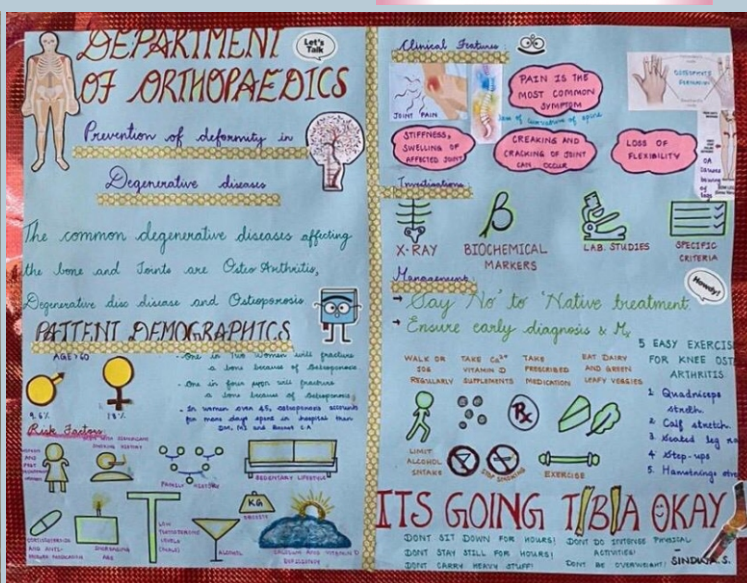 DEPARTMENT
OF ORTHOPAEDICS
Let's
Talk
Prevention of deformity in
Degenerative diseases
The common degenerative diseases affecting
the bone and Joints are Osteo Arthritis,
Degenerative disc disease and Osteoporosis.
PATIENT DEMOGRAPHICS
AGE>60
9.6%
18%
- One in Two Women will fracture
a bone because of Osteoporosis.
- One in four men will fracture
a bone because of Osteoporosis
- In women over 45, osteoporosis accounts
for more days spent in hospital than
Risk Factors
SMOKING HISTORY
FAMILY HISTORY
SEDENTARY LIFESTYLE
KG
OBESITY
INCREASING
AGE
LOW
TESTOSTERONE
LEVELS
(MALES)
ALCOHOL
CALCIUM AND VITAMIN D
DEFICIENCY
Clinical Features:
JOINT PAIN
PAIN IS THE
MOST COMMON
SYMPTOM
loss of curvature of spine
STIFFNESS,
SWELLING OF
AFFECTED JOINT
CREAKING AND
CRACKING OF JOINT
CAN OCCUR
LOSS OF
FLEXIBILITY
OA
causes
bowing
of
legs
Investigations:
X-RAY
β
BIOCHEMICAL
MARKERS
LAB. STUDIES
SPECIFIC
CRITERIA
Management:
Howdy!
→ Say 'No' to 'Native treatment.
→ Ensure early diagnosis &
WALK OR
JOG
REGULARLY
TAKE Ca²⁺
VITAMIN D
SUPPLEMENTS
TAKE
PRESCRIBED
MEDICATION
EAT DAIRY
AND GREEN
LEAFY VEGGIES
Rx
LIMIT
ALCOHOL
INTAKE
STOP SMOKING
EXERCISE
5 EASY EXERCIS
FOR KNEE OST
ARTHRITIS
1. Quadriceps
stretch.
2. Calf stretch.
3. Seated leg
4. Step-ups
5. Hamstrings
ITS GOING TIBIA OKAY
DONT SIT DOWN FOR HOURS!
DONT STAY STILL FOR HOURS!
DONT CARRY HEAVY STUFF!
DONT DO INTENSE PHYSICAL
ACTIVITIES!
DONT BE OVERWEIGHT!
- SINDUJA. S.